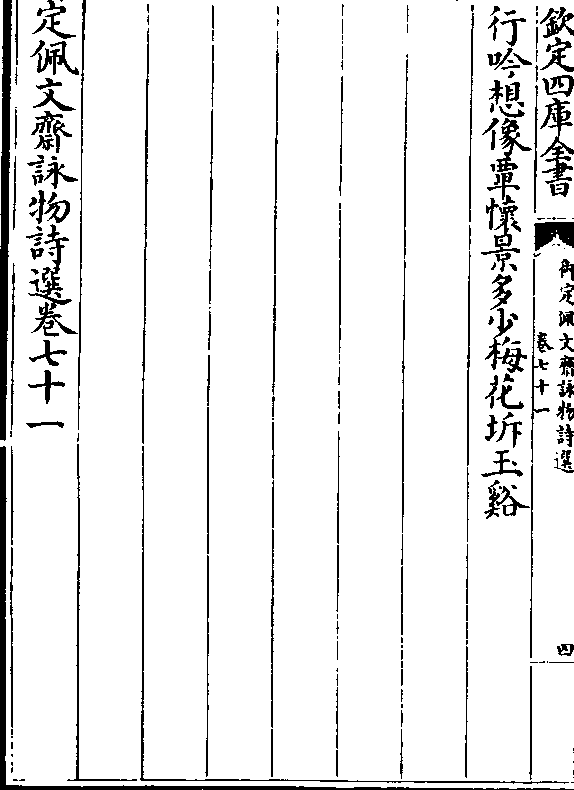 欽定四庫全書
御定佩文齋詠物詩選
卷七十一
四
行吟想像覃懷景多少梅花坼玉谿
定佩文齋詠物詩選卷七十一